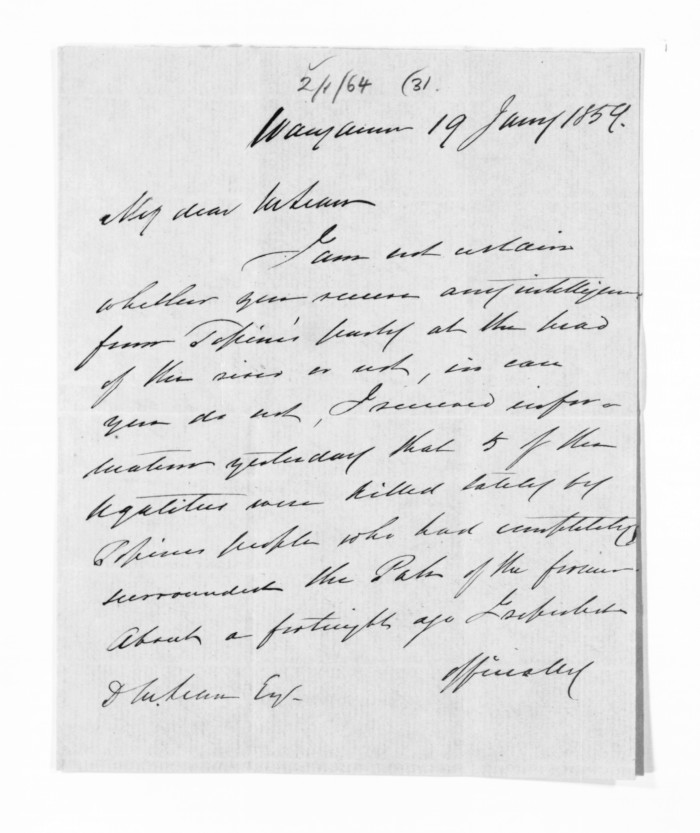 2/1/64 (31.
Wanganui 19 Jany 1859.
My dear McLean
I am not certain
whether you receive any intelligence
from Topine's party at the head
of the river or not, in case
you do not, I received infor-
mation yesterday that 5 of the
Ngatitus were killed lately by
Topines people who had completely
surrounded the Pah of the former.
About a fortnight ago I reported
D McLean Esq. officially